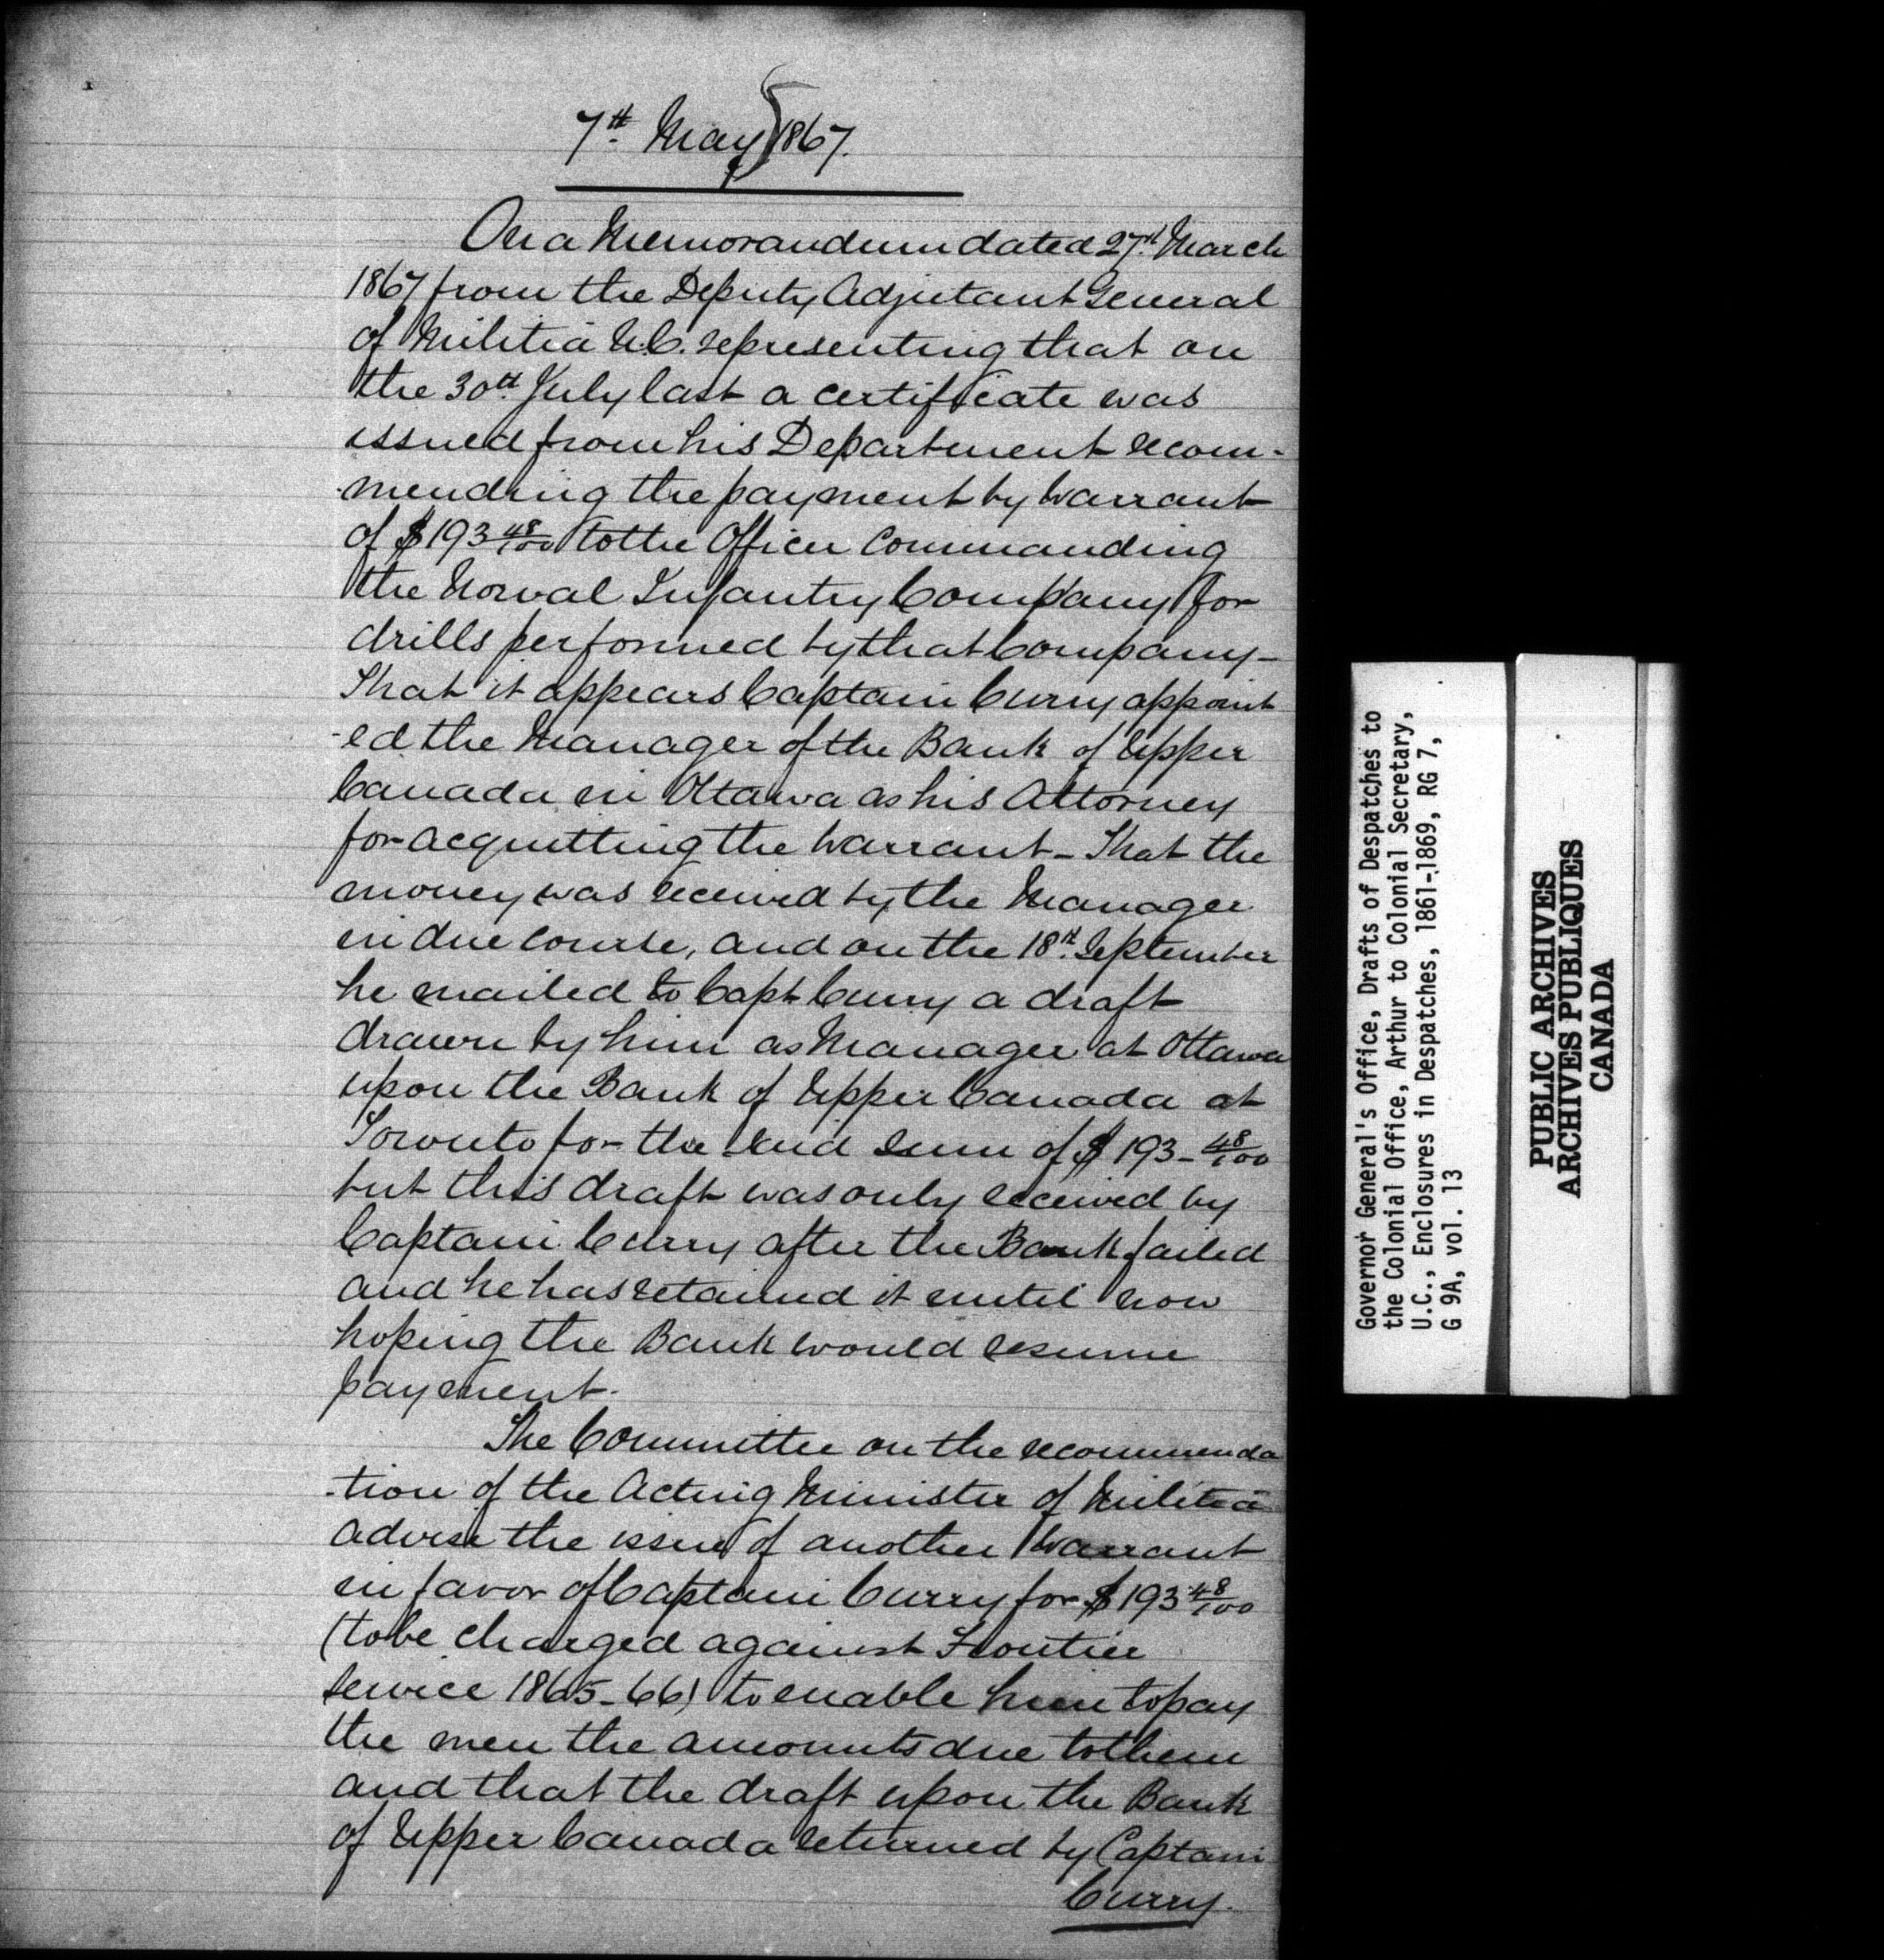 7th May 1867.
On a Memorandum dated 27th March
1867 from the Deputy Adjutant General
of Militia U.C. representing that on
the 30th July last a certificate was
issued from his Department recom-
-mending the payment by Warrant
of $193 48/100 to the Officer Commanding
the Norval Infantry Company for
drills performed by that Company-
That it appears Captain Curry appoint
-ed the Manager of the Bank of Upper
Canada in Ottawa as his Attorney
for acquitting the Warrant- That the
money was received by the Manager
in due course, and on the 18th September
he mailed to Capt Curry a draft
drawn by him as Manager at Ottawa
upon the Bank of Upper Canada at
Toronto for the said sum of $193-48/100
but this draft was only received by
Captain Curry after the Bank failed
and he has retained it until now
hoping the Bank would resume
payment.
The Committee on the recommenda
-tion of the Acting Minister of Militia
advise the issue of another Warrant
in favor of Captain Curry for $193 48/100
(to be charged against Frontier
Service 1865-66) to enable him to pay
the men the amounts due to them
and that the draft upon the Bank
of Upper Canada returned by Captain
Curry.
Governor General's Office, Drafts of Despatches to
the Colonial Office, Arthur to Colonial Secretary,
U.C., Enclosures in Despatches, 1861-1869, RG 7,
G 9A, vol. 13
PUBLIC ARCHIVES
ARCHIVES PUBLIQUES
CANADA